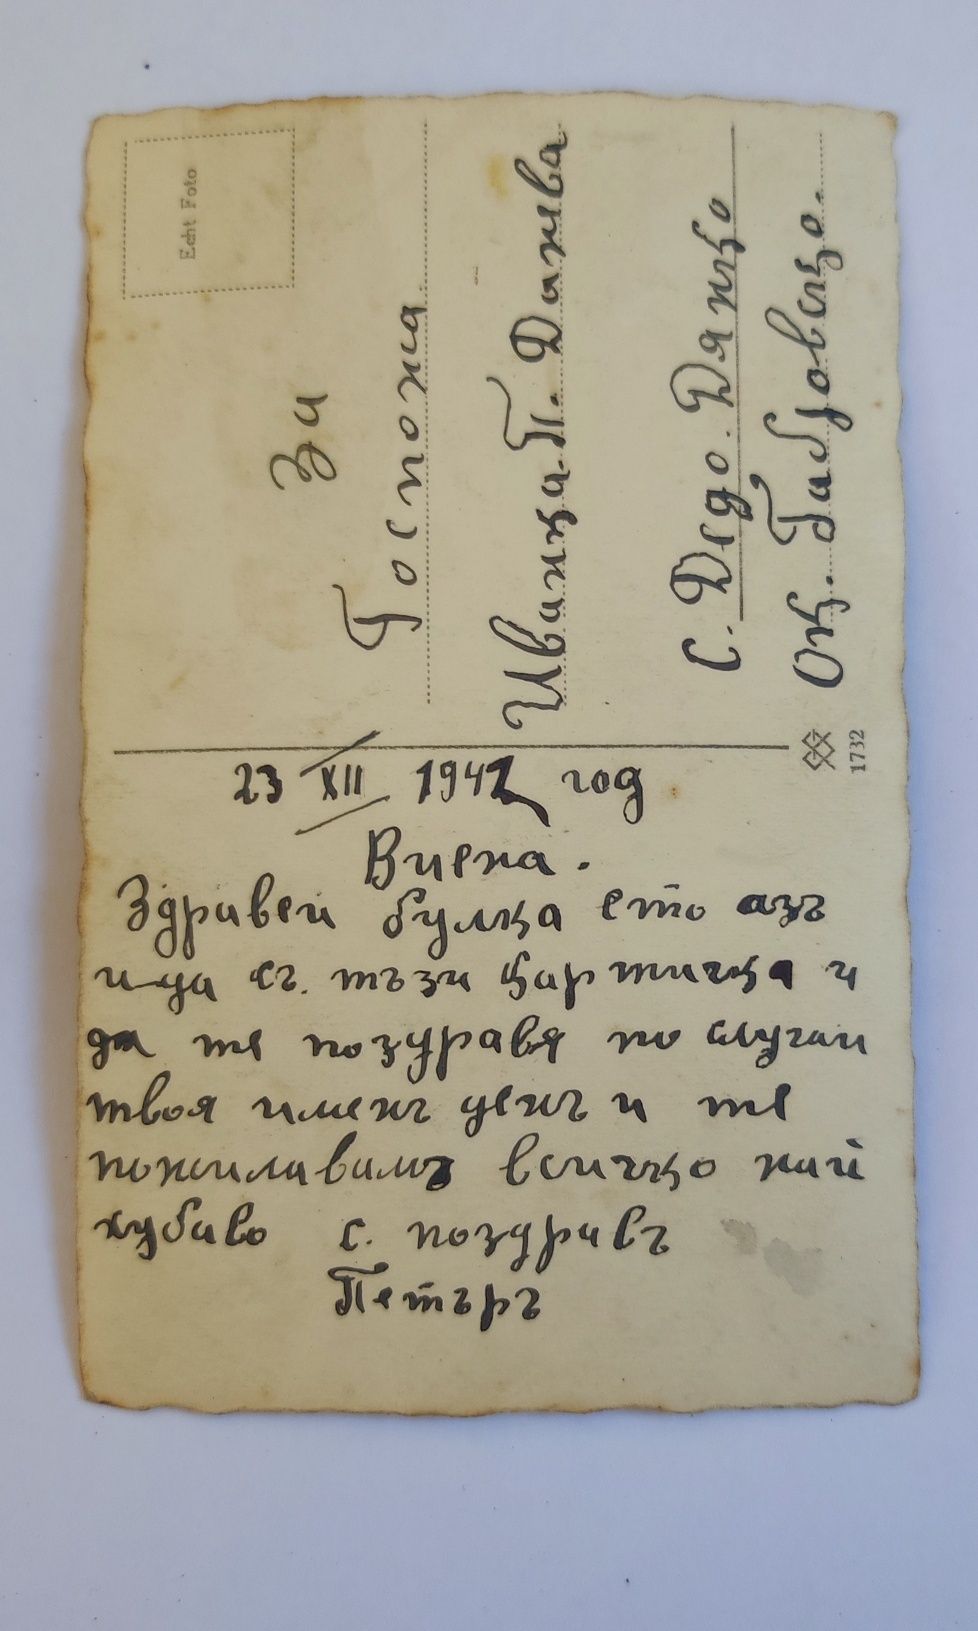 Echt Foto
За
Госпожа
Иванка П. Данева
С. Дядо. Дянко
Ок. Габровско.
1732
23 XII 1942 год
Виена.
Здравей булка ето азъ
ида съ. тъзи картичка и
да те поздравя по случаи
твоя именъ денъ и те
пожилавамъ всичко най
хубаво с. поздравъ
Петъръ